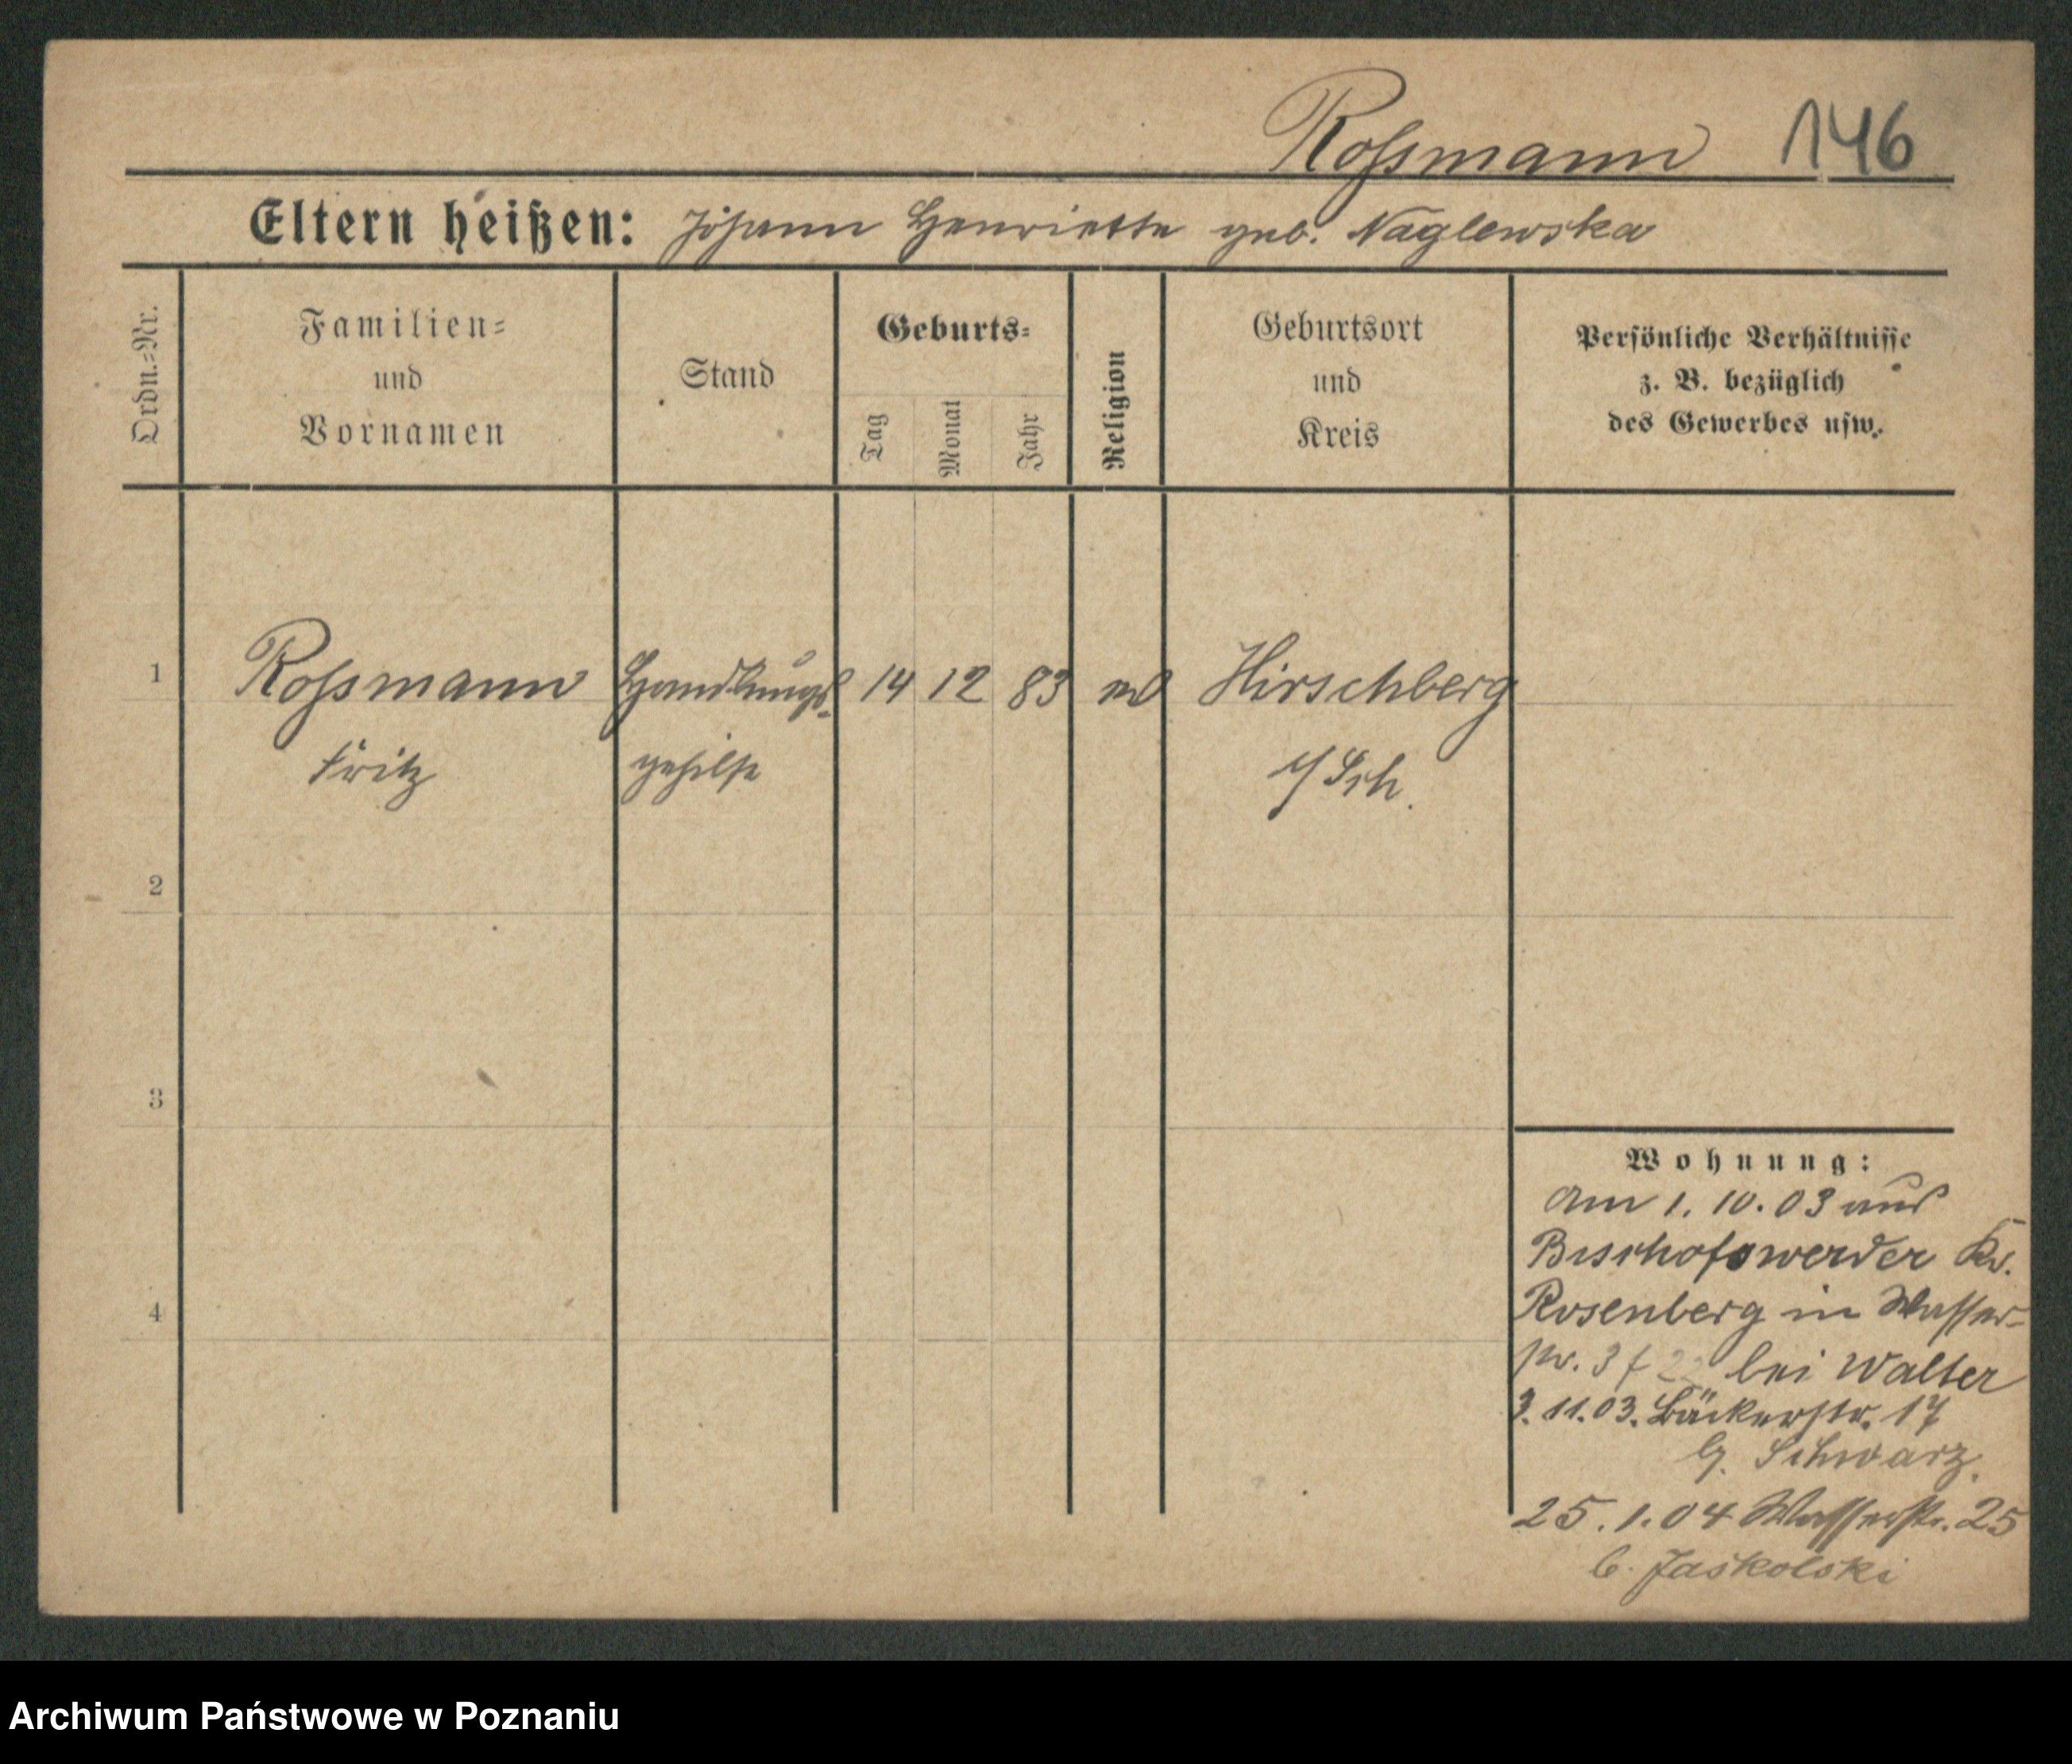 Roſsmann 146
Eltern heißen: Johann Henriette geb. Naglewska
Ordn.-Nr.
Familien-
und
Vornamen
Stand
Geburts-
Tag
Monat
Jahr
Religion
Geburtsort
und
Kreis
Persönliche Verhältnisse
z. B. bezüglich
des Gewerbes usw.
1 Roſsmann Handlungs- 14 12 83 Hirschberg
Fritz gehilfe Sch.
2
3
4
Wohnung:
Am 1. 10. 03 aus
Bischofswerder Kr.
Rosenberg in Wasser-
str. bei Walter
3. 11. 03. Bäckerstr. 17
b. Schwarz.
25. 1. 04 Wasserstr. 25
b. Jaskolski
Archiwum Państwowe w Poznaniu